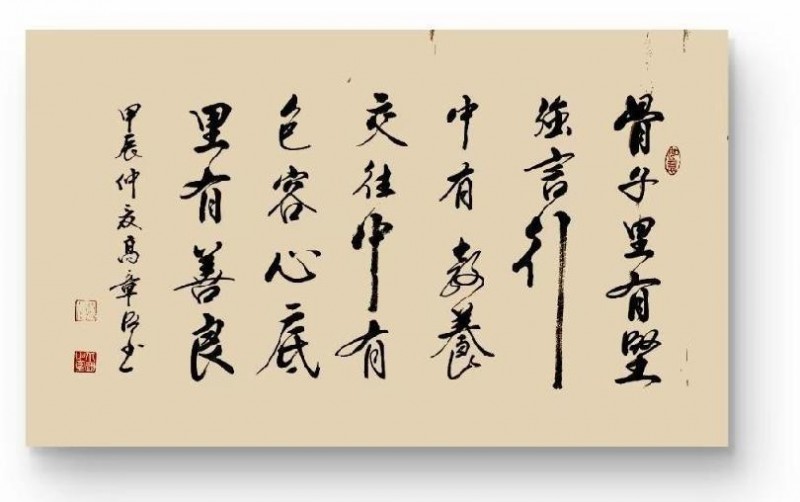 骨子里有坚
强言行
中有教養
交往中有
包容心底
里有善良
甲辰仲夏高章臣书